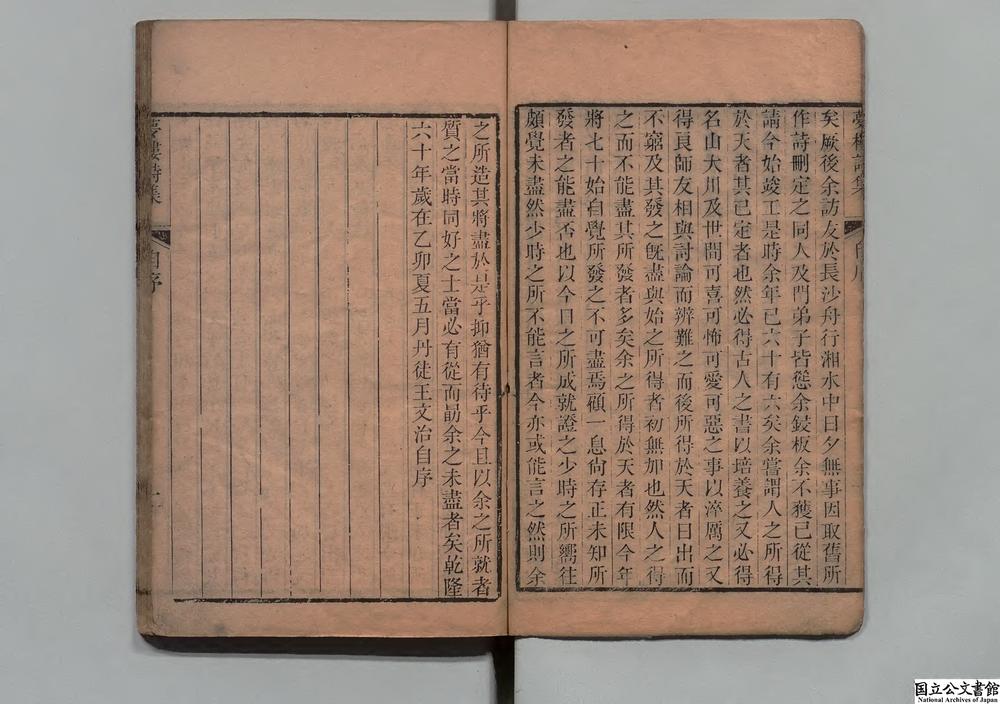 夢樓詩集
自序
矣厥後余訪友於長沙舟行湘水中日夕無事因取舊所
作詩刪定之同人及門弟子皆慫余鋟板余不獲已從其
請今始竣工是時余年已六十有六矣余嘗謂人之所得
於天者其已定者也然必得古人之書以培養之又必得
名山大川及世間可喜可怖可愛可惡之事以淬厲之又
得良師友相與討論而辨難之而後所得於天者日出而
不窮及其發之既盡與始之所得者初無加也然人之得
之而不能盡其所發者多矣余之所得於天者有限今年
將七十始自覺所發之不可盡焉顧一息尙存正未知所
發者之能盡否也以今日之所成就證之少時之所嚮往
頗覺未盡然少時之所不能言者今亦或能言之然則余
之所造其將盡於是乎抑猶有待乎今且以余之所就者
質之當時同好之士當必有從而勗余之未盡者矣乾隆
六十年歲在乙卯夏五月丹徒王文治自序
夢樓詩集
自序
国立公文書館
National Archives of Japan